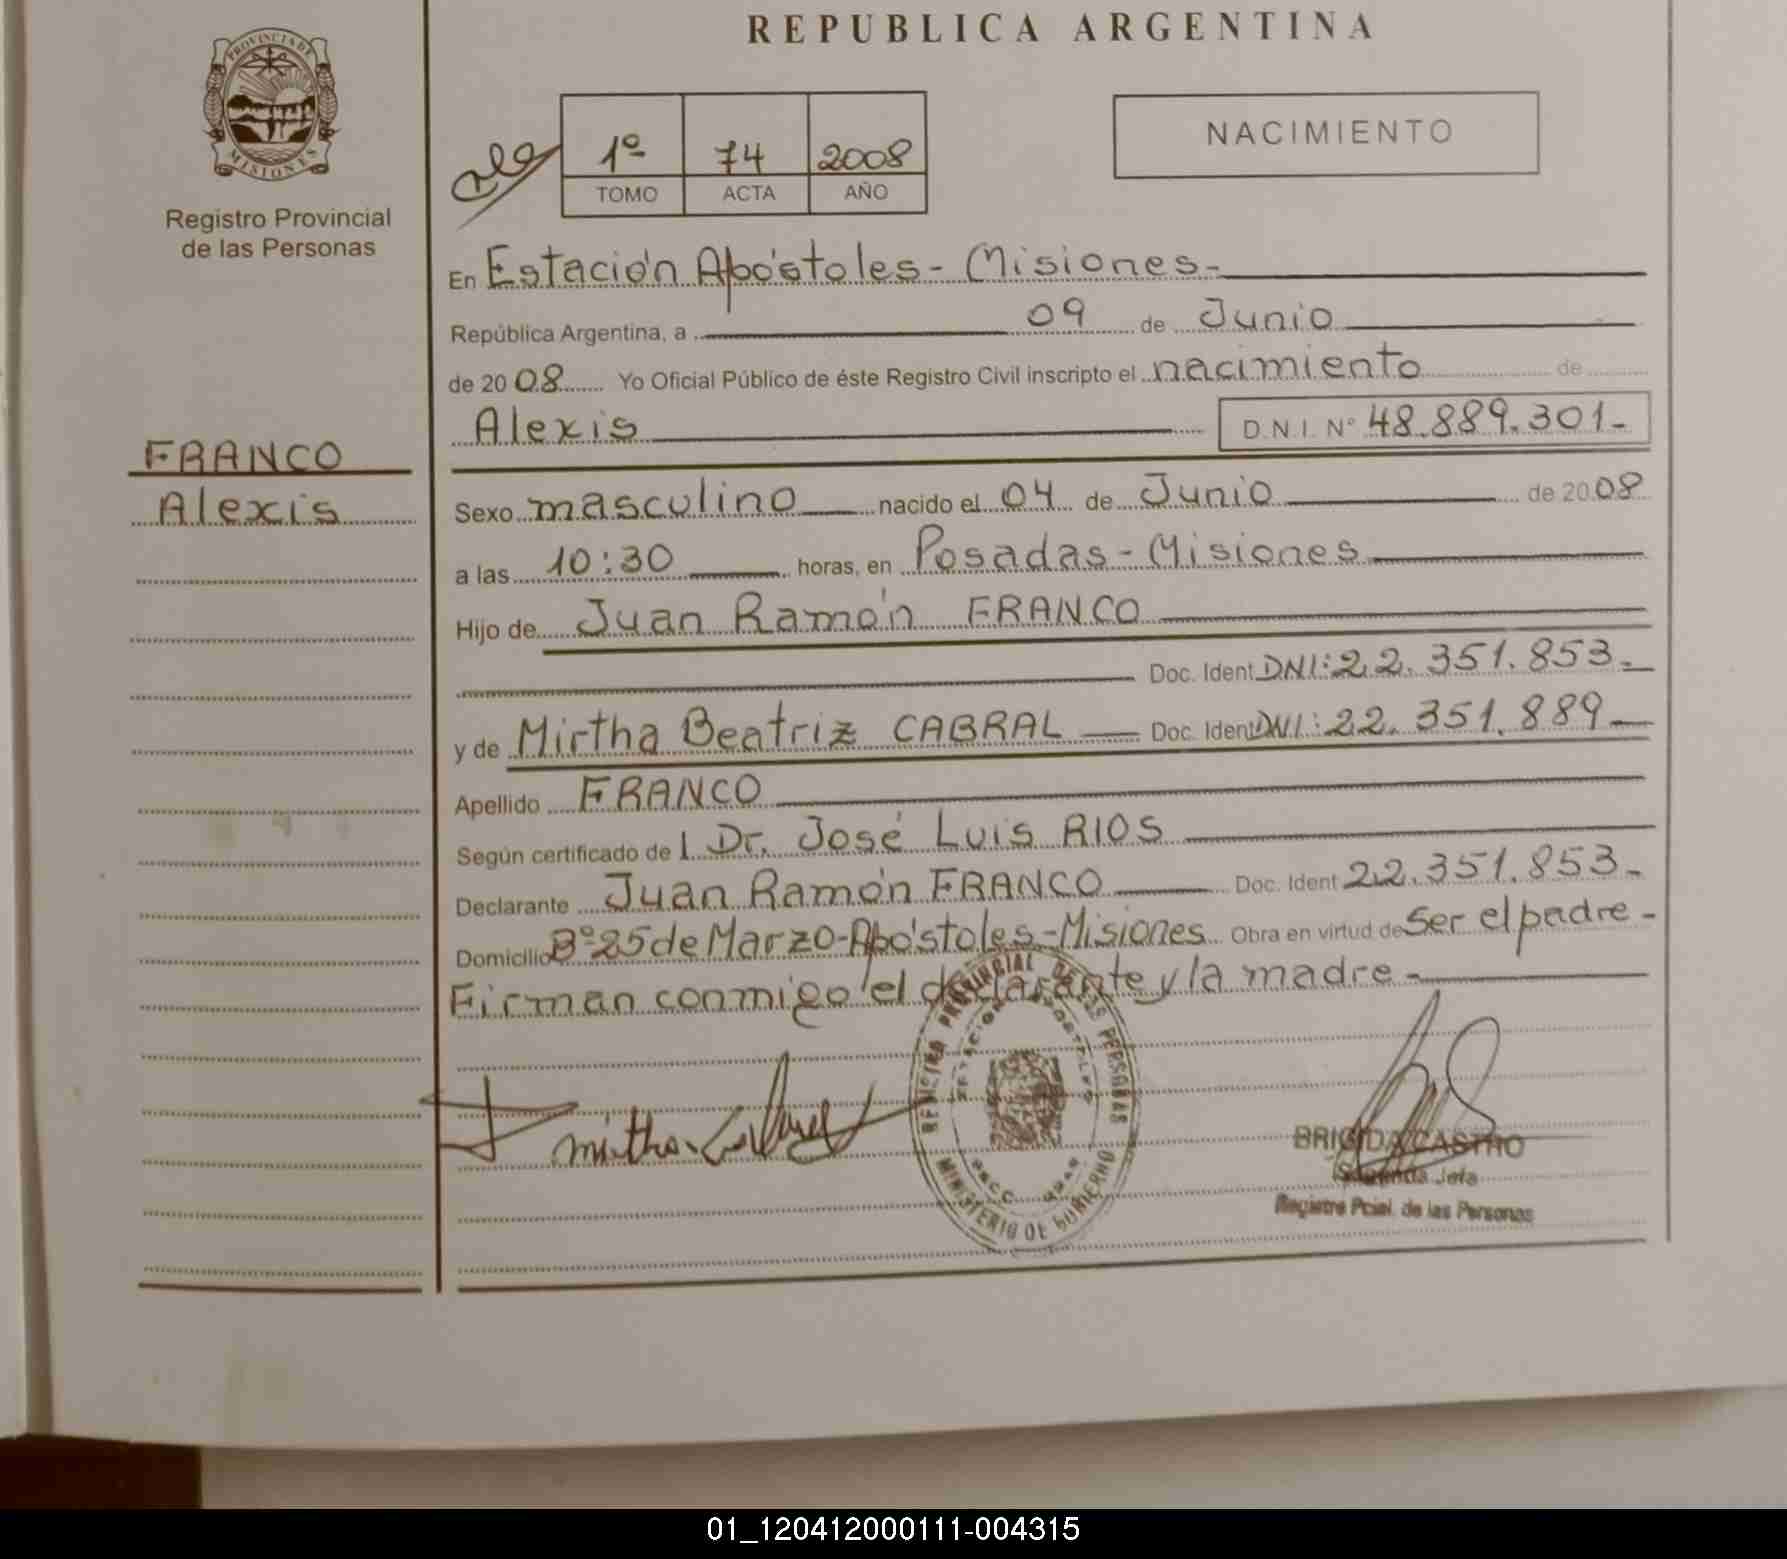 REPUBLICA ARGENTINA
PROVINCIA DE
MISIONES
Registro Provincial
de las Personas
1º 74 2008
TOMO ACTA AÑO
NACIMIENTO
En Estación Apóstoles - Misiones -
República Argentina, a 09 de Junio
de 2008 Yo Oficial Público de éste Registro Civil inscripto el nacimiento de
Alexis D.N.I. Nº 48.889.301-
FRANCO
Alexis
Sexo masculino nacido el 04 de Junio de 2008
a las 10:30 horas, en Posadas - Misiones
Hijo de Juan Ramón FRANCO
Doc. Ident DNI: 22.351.853-
y de Mirtha Beatriz CABRAL Doc. Ident DNI: 22.351.889-
Apellido FRANCO
Según certificado de l Dr. José Luis RIOS
Declarante Juan Ramón FRANCO Doc. Ident 22.351.853-
Domicilio Bº 25 de Marzo - Apóstoles - Misiones Obra en virtud de Ser el padre -
Firman conmigo el declarante y la madre -
REGISTRO PROVINCIAL DE LAS PERSONAS
MINISTERIO DE GOBIERNO
BRIGIDA CASTRO
Segunda Jefa
Registro Pcial. de las Personas
01_120412000111-004315